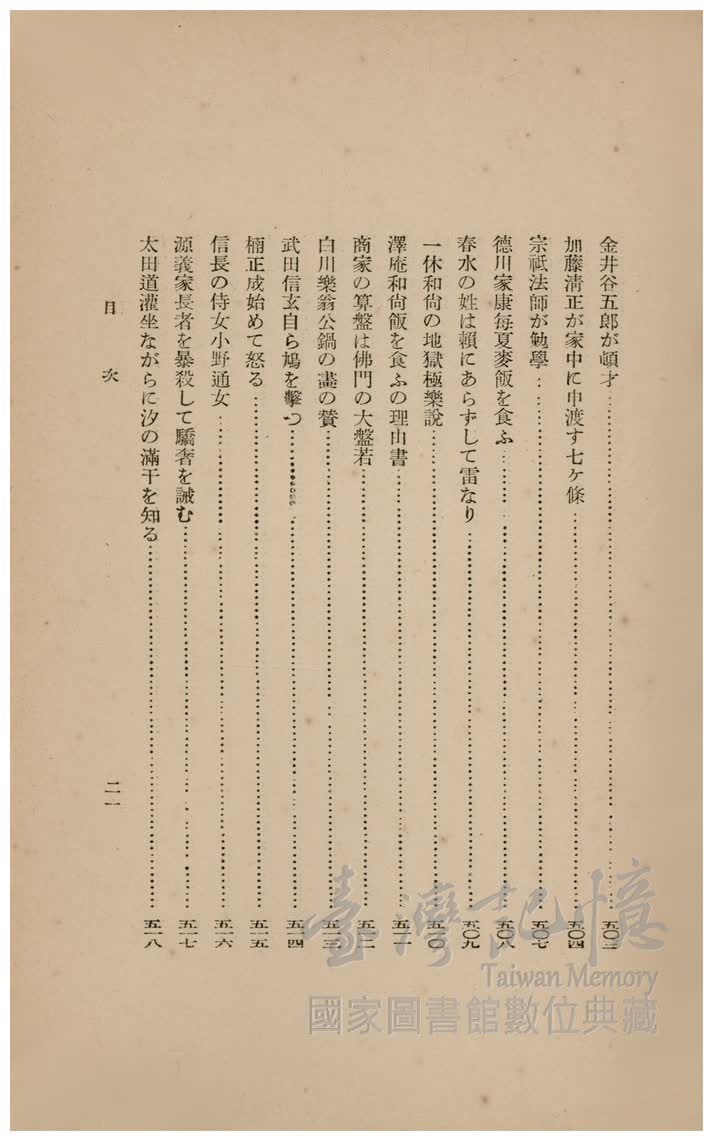 金井谷五郎が頓才……五〇三
加藤淸正が家中に申渡す七ケ條……五〇四
宗祗法師が勉學……五〇七
德川家康每夏麥飯を食ふ……五〇八
春水の姓は賴にあらずして雷なり……五〇九
一休和尙の地獄極樂說……五一〇
澤庵和尙飯を食ふの理由書……五一一
商家の算盤は佛門の大盤若……五一二
白川樂翁公鍋の畵の贊……五一三
武田信玄自ら鳩を擊つ……五一四
楠正成始めて怒る……五一五
信長の侍女小野通女……五一六
源義家長者を暴殺して驕奢を誡む……五一七
太田道灌坐ながらに汐の滿干を知る……五一八
目次
二一
臺灣記憶
Taiwan Memory
國家圖書館數位典藏